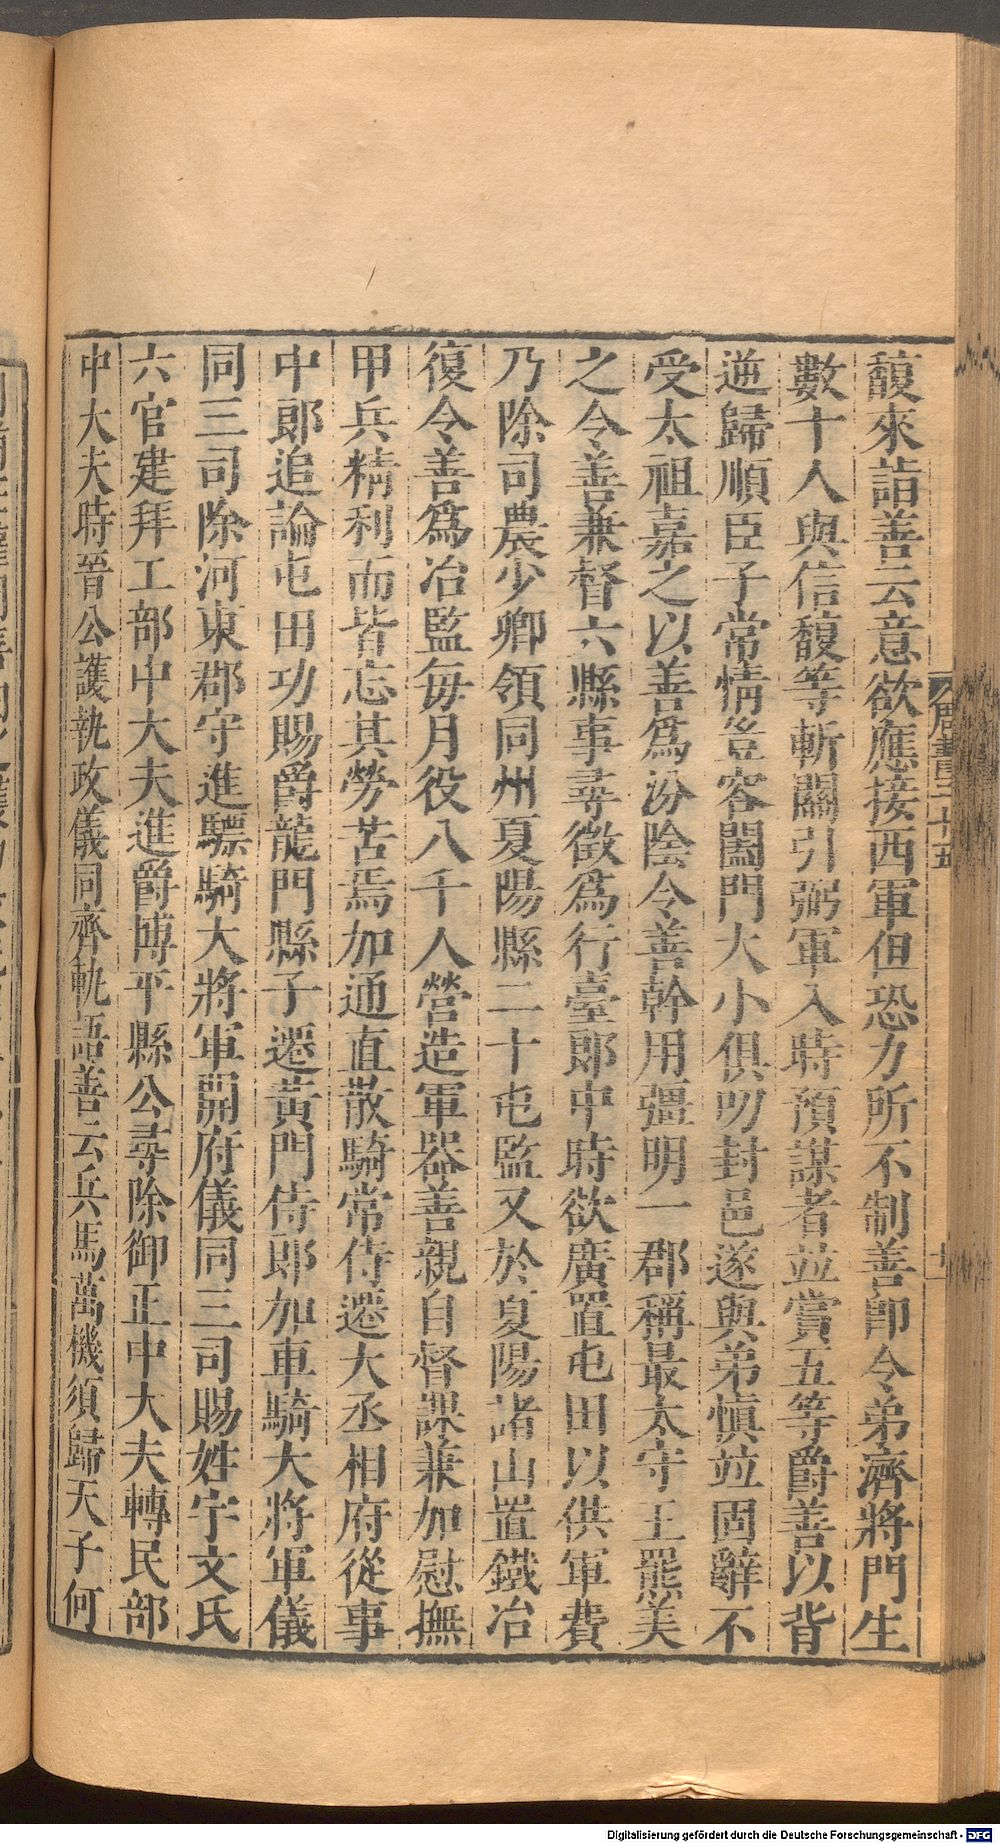 馥來詣善云意欲應接西軍但恐力所不制善卽令弟濟將門生
數十人與信馥等斬關引弼軍入時預謀者竝賞五等爵善以背
逆歸順臣子常情豈容闔門大小俱叨封邑遂與弟愼竝固辭不
受太祖嘉之以善爲汾陰令善幹用彊明一郡稱最太守王羆美
之令善兼督六縣事尋徵爲行臺郎中時欲廣置屯田以供軍費
乃除司農少卿領同州夏陽縣二十屯監又於夏陽諸山置鐵冶
復令善爲冶監每月役八千人營造軍器善親自督課兼加慰撫
甲兵精利而皆忘其勞苦焉加通直散騎常侍遷大丞相府從事
中郎追論屯田功賜爵龍門縣子遷黃門侍郎加車騎大將軍儀
同三司除河東郡守進驃騎大將軍開府儀同三司賜姓宇文氏
六官建拜工部中大夫進爵博平縣公尋除御正中大夫轉民部
中大夫時晉公護執政儀同齊軌語善云兵馬萬機須歸天子何
周書三十五
Digitalisierung gefördert durch die Deutsche Forschungsgemeinschaft - DFG